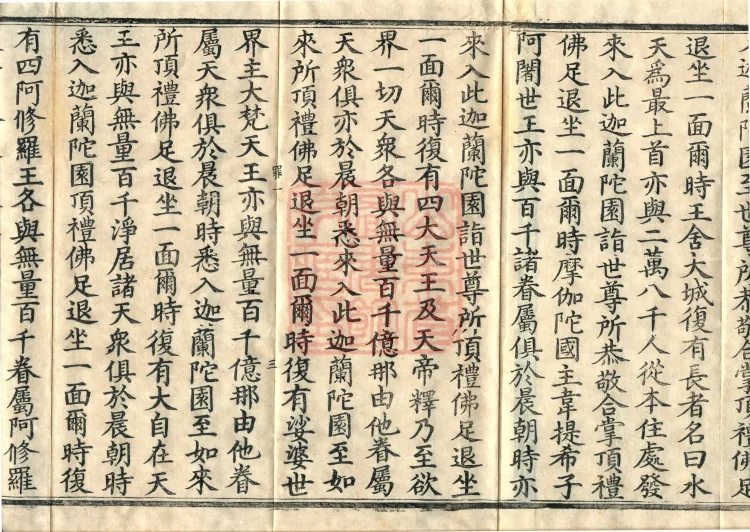 迦蘭陀園至世尊所恭敬合掌頂禮佛足
退坐一面爾時王舍大城復有長者名曰水
天爲最上首亦與二萬八千人從本住處發
來入此迦蘭陀園詣世尊所恭敬合掌頂禮
佛足退坐一面爾時摩伽陀國主韋提希子
阿闍世王亦與百千諸眷屬俱於晨朝時亦
來入此迦蘭陀園詣世尊所頂禮佛足退坐
一面爾時復有四大天王及天帝釋乃至欲
界一切天衆各與無量百千億那由他眷屬
天衆俱亦於晨朝悉來入此迦蘭陀園至如
來所頂禮佛足退坐一面爾時復有娑婆世
罪一 三
界主大梵天王亦與無量百千億那由他眷
屬天衆俱於晨朝時悉入迦蘭陀園至如來
所頂禮佛足退坐一面爾時復有大自在天
王亦與無量百千淨居諸天衆俱於晨朝時
悉入迦蘭陀園頂禮佛足退坐一面爾時復
有四阿修羅王各與無量百千眷屬阿修羅